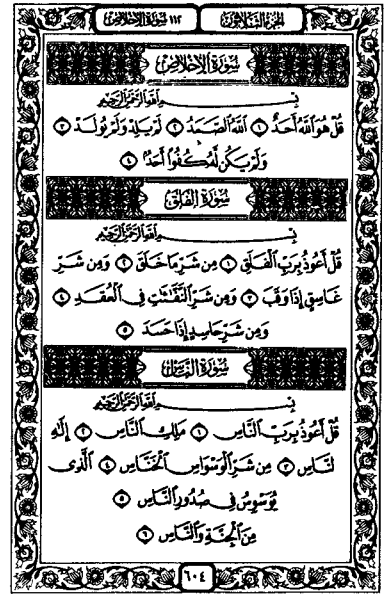 الجزء الثلاثون
سورة الإخلاص ١١٢
سُورَةُ الإِخْلَاصِ
بِسْمِ ٱللَّهِ ٱلرَّحْمَٰنِ ٱلرَّحِيمِ
قُلْ هُوَ ٱللَّهُ أَحَدٌ ١ ٱللَّهُ ٱلصَّمَدُ ٢ لَمْ يَلِدْ وَلَمْ يُولَدْ ٣
وَلَمْ يَكُن لَّهُۥ كُفُوًا أَحَدٌۢ ٤
سُورَةُ الفَلَقِ
بِسْمِ ٱللَّهِ ٱلرَّحْمَٰنِ ٱلرَّحِيمِ
قُلْ أَعُوذُ بِرَبِّ ٱلْفَلَقِ ١ مِن شَرِّ مَا خَلَقَ ٢ وَمِن شَرِّ
غَاسِقٍ إِذَا وَقَبَ ٣ وَمِن شَرِّ ٱلنَّفَّٰثَٰتِ فِى ٱلْعُقَدِ ٤
وَمِن شَرِّ حَاسِدٍ إِذَا حَسَدَ ٥
سُورَةُ النَّاسِ
بِسْمِ ٱللَّهِ ٱلرَّحْمَٰنِ ٱلرَّحِيمِ
قُلْ أَعُوذُ بِرَبِّ ٱلنَّاسِ ١ مَلِكِ ٱلنَّاسِ ٢ إِلَٰهِ
ٱلنَّاسِ ٣ مِن شَرِّ ٱلْوَسْوَاسِ ٱلْخَنَّاسِ ٤ ٱلَّذِى
يُوَسْوِسُ فِى صُدُورِ ٱلنَّاسِ ٥
مِنَ ٱلْجِنَّةِ وَٱلنَّاسِ ٦
٦٠٤